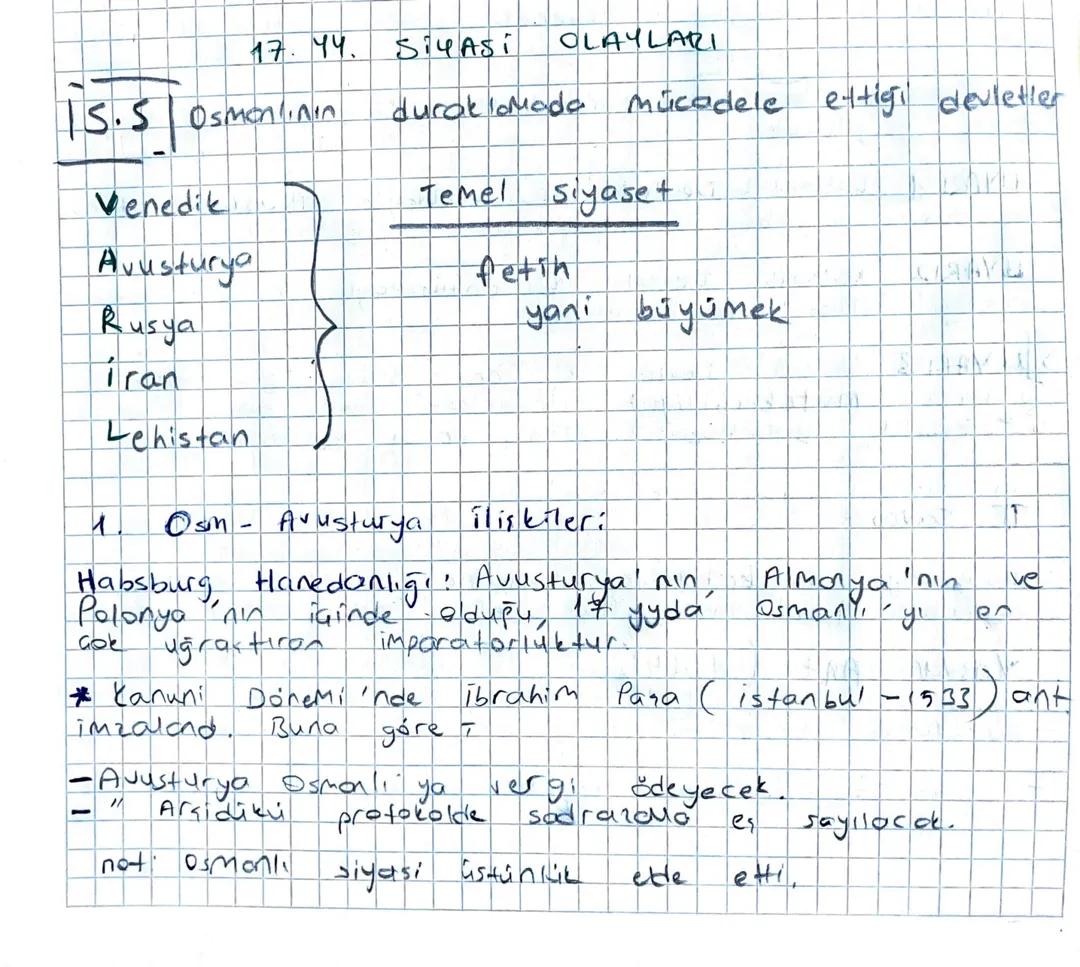 17. YY. SİYASİ OLAYLARI
İS.S Osmanlının duraklamada mücadele ettiği devletler
Venedik
Avusturya
Rusya
İran
Lehistan
Temel siyaset
fetih
yani büyümek
1. Osm - Avusturya ilişkileri:
Habsburg Hanedanlığı: Avusturya'nın, Almanya'nın ve
Polonya'nın içinde olduğu, 17 yyda Osmanlı'yı en
çok uğraştıran imparatorluktur.
* Kanuni Dönemi'nde İbrahim Paşa (istanbul - 1533) ant.
imzaland. Buna göre;
- Avusturya Osmanlı'ya vergi ödeyecek.
- " Arşidükü protokolde sadrazama eş sayılacak.
not: Osmanlı siyasi üstünlük elde etti.